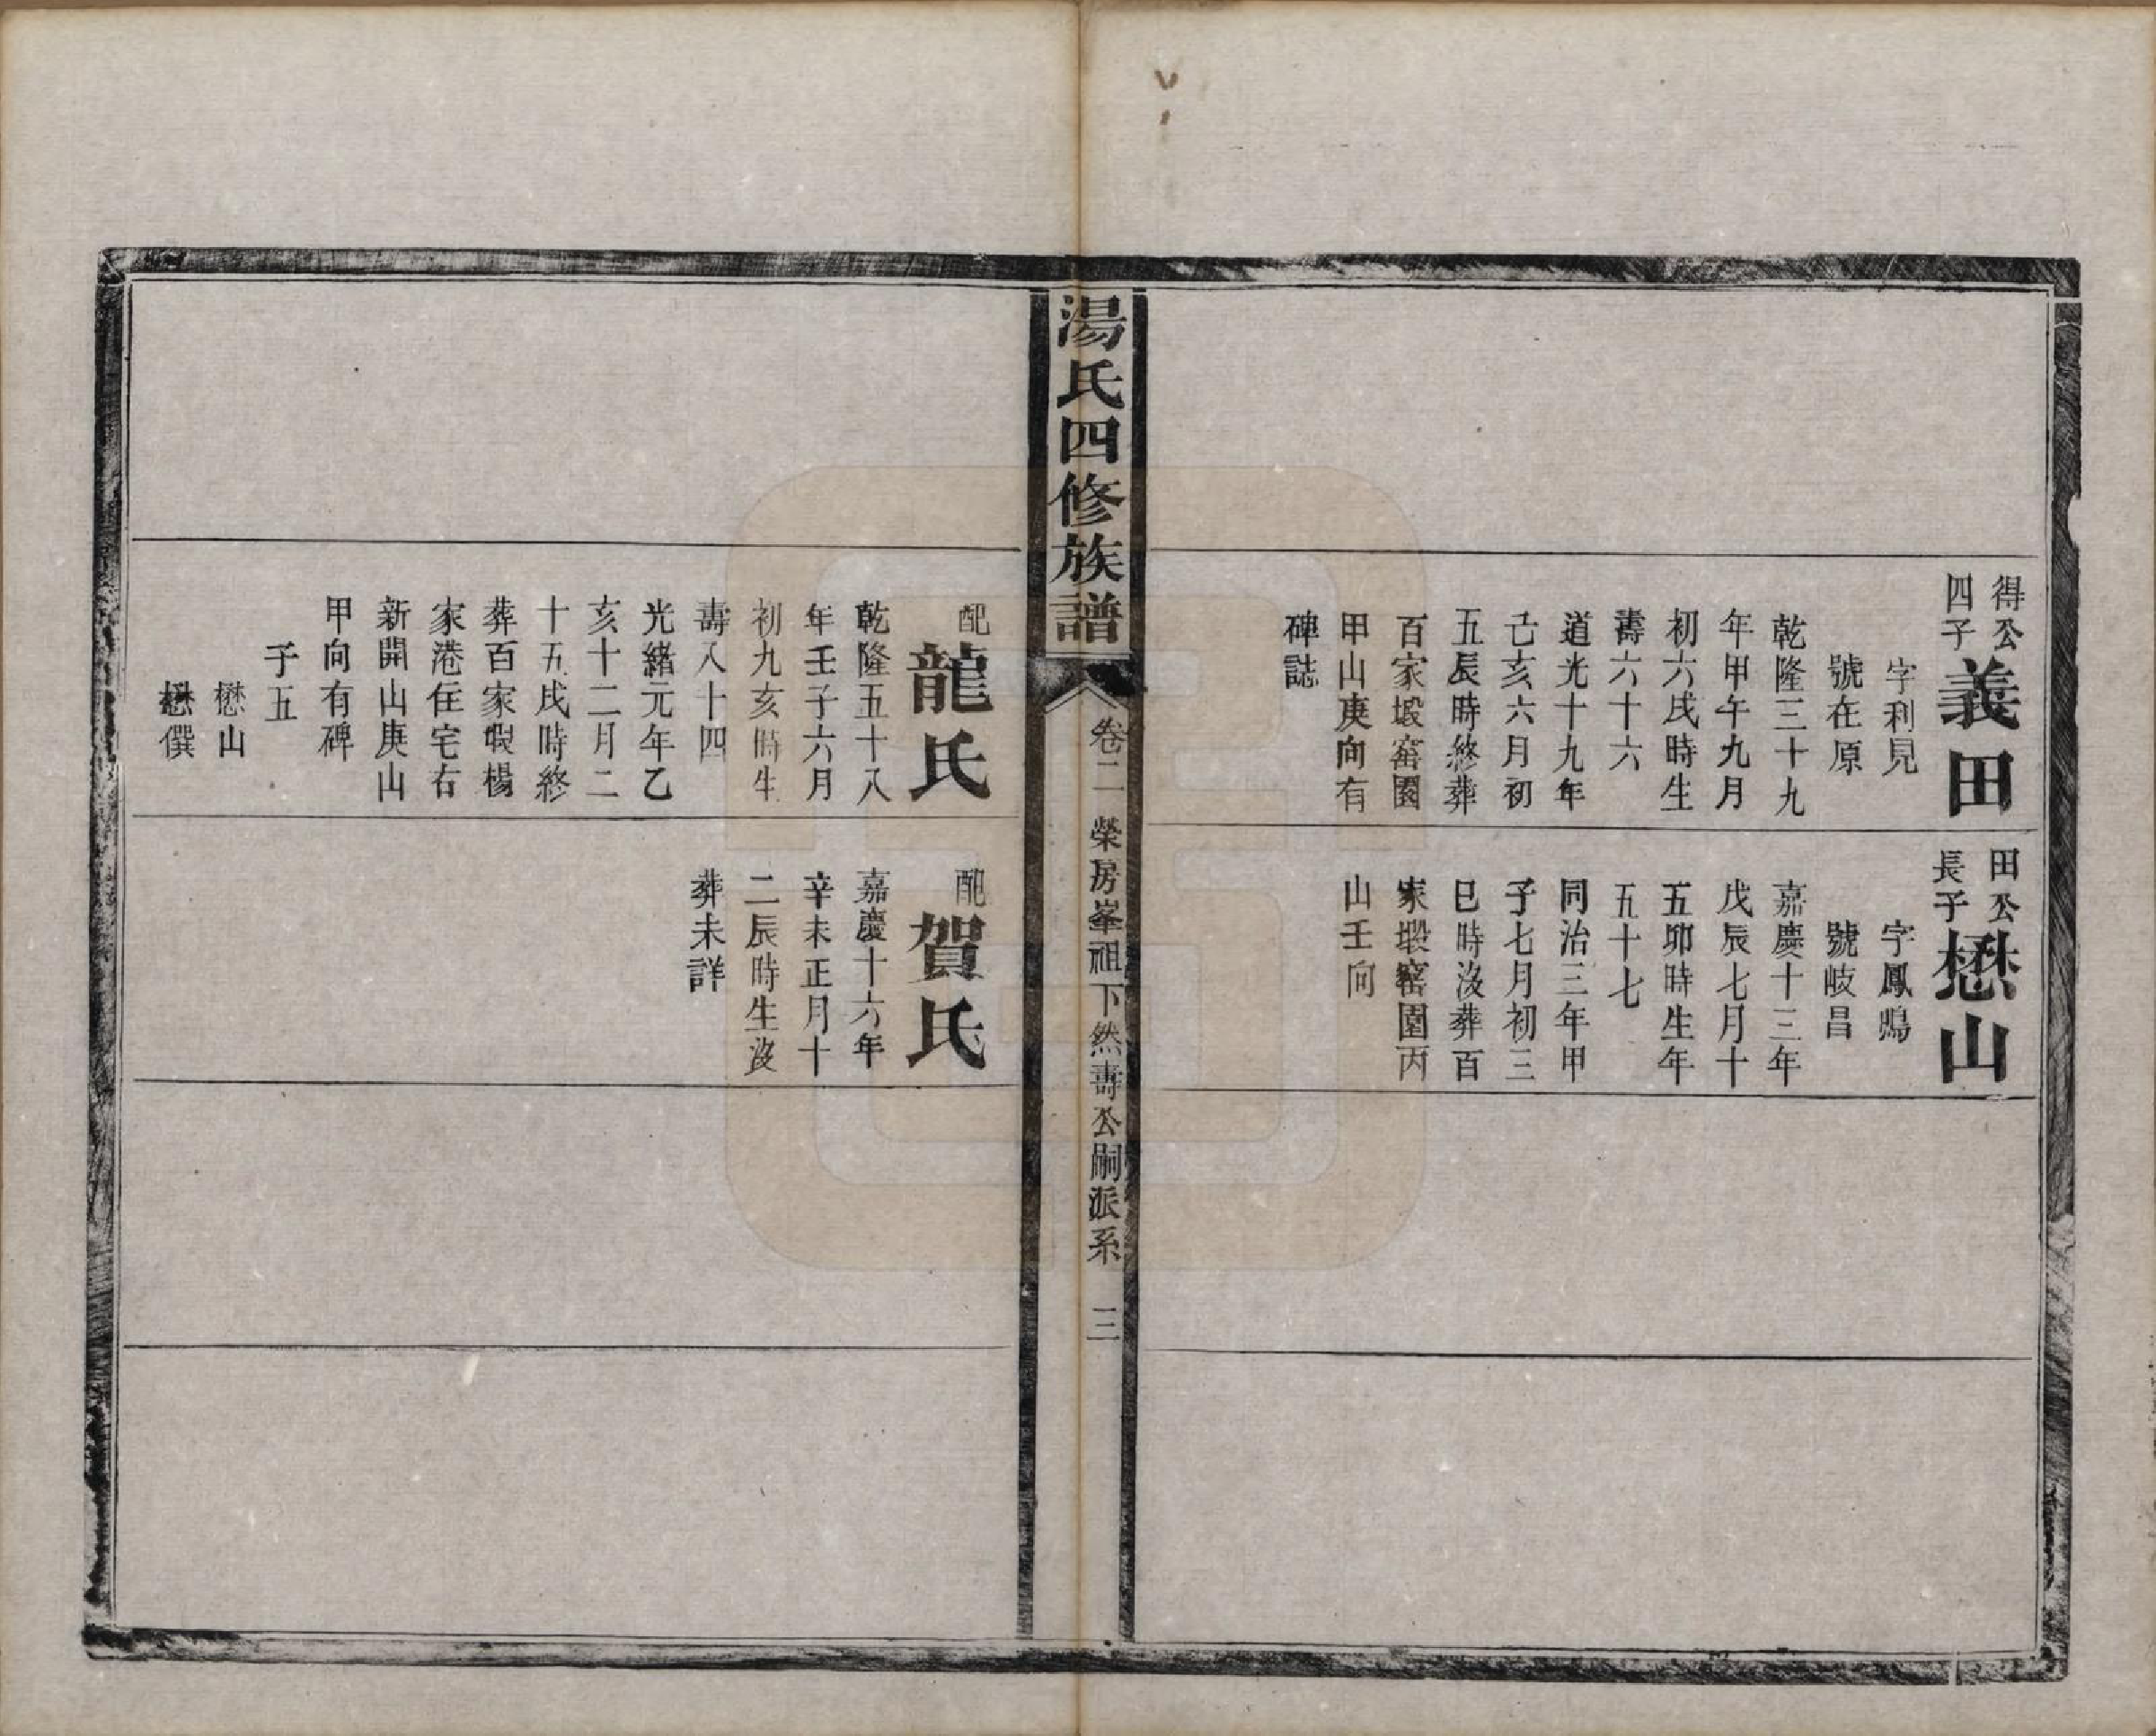 得公
四子
義田
字利見
號在原
乾隆三十九
年甲午九月
初六戌時生
壽六十六
道光十九年
己亥六月初
五辰時終葬
百家塅窰園
甲山庚向有
碑誌
田公
長子
懋山
字鳳鳴
號岐昌
嘉慶十三年
戊辰七月十
五卯時生年
五十七
同治三年甲
子七月初三
巳時沒葬百
家塅窰園丙
山壬向
湯氏四修族譜
卷二
榮房峯祖下然壽公嗣派系
三
配
龍氏
乾隆五十八
年壬子六月
初九亥時生
壽八十四
光緒元年乙
亥十二月二
十五戌時終
葬百家塅楊
家港住宅右
新開山庚山
甲向有碑
子五
懋山
懋僎
配
賀氏
嘉慶十六年
辛未正月十
二辰時生沒
葬未詳